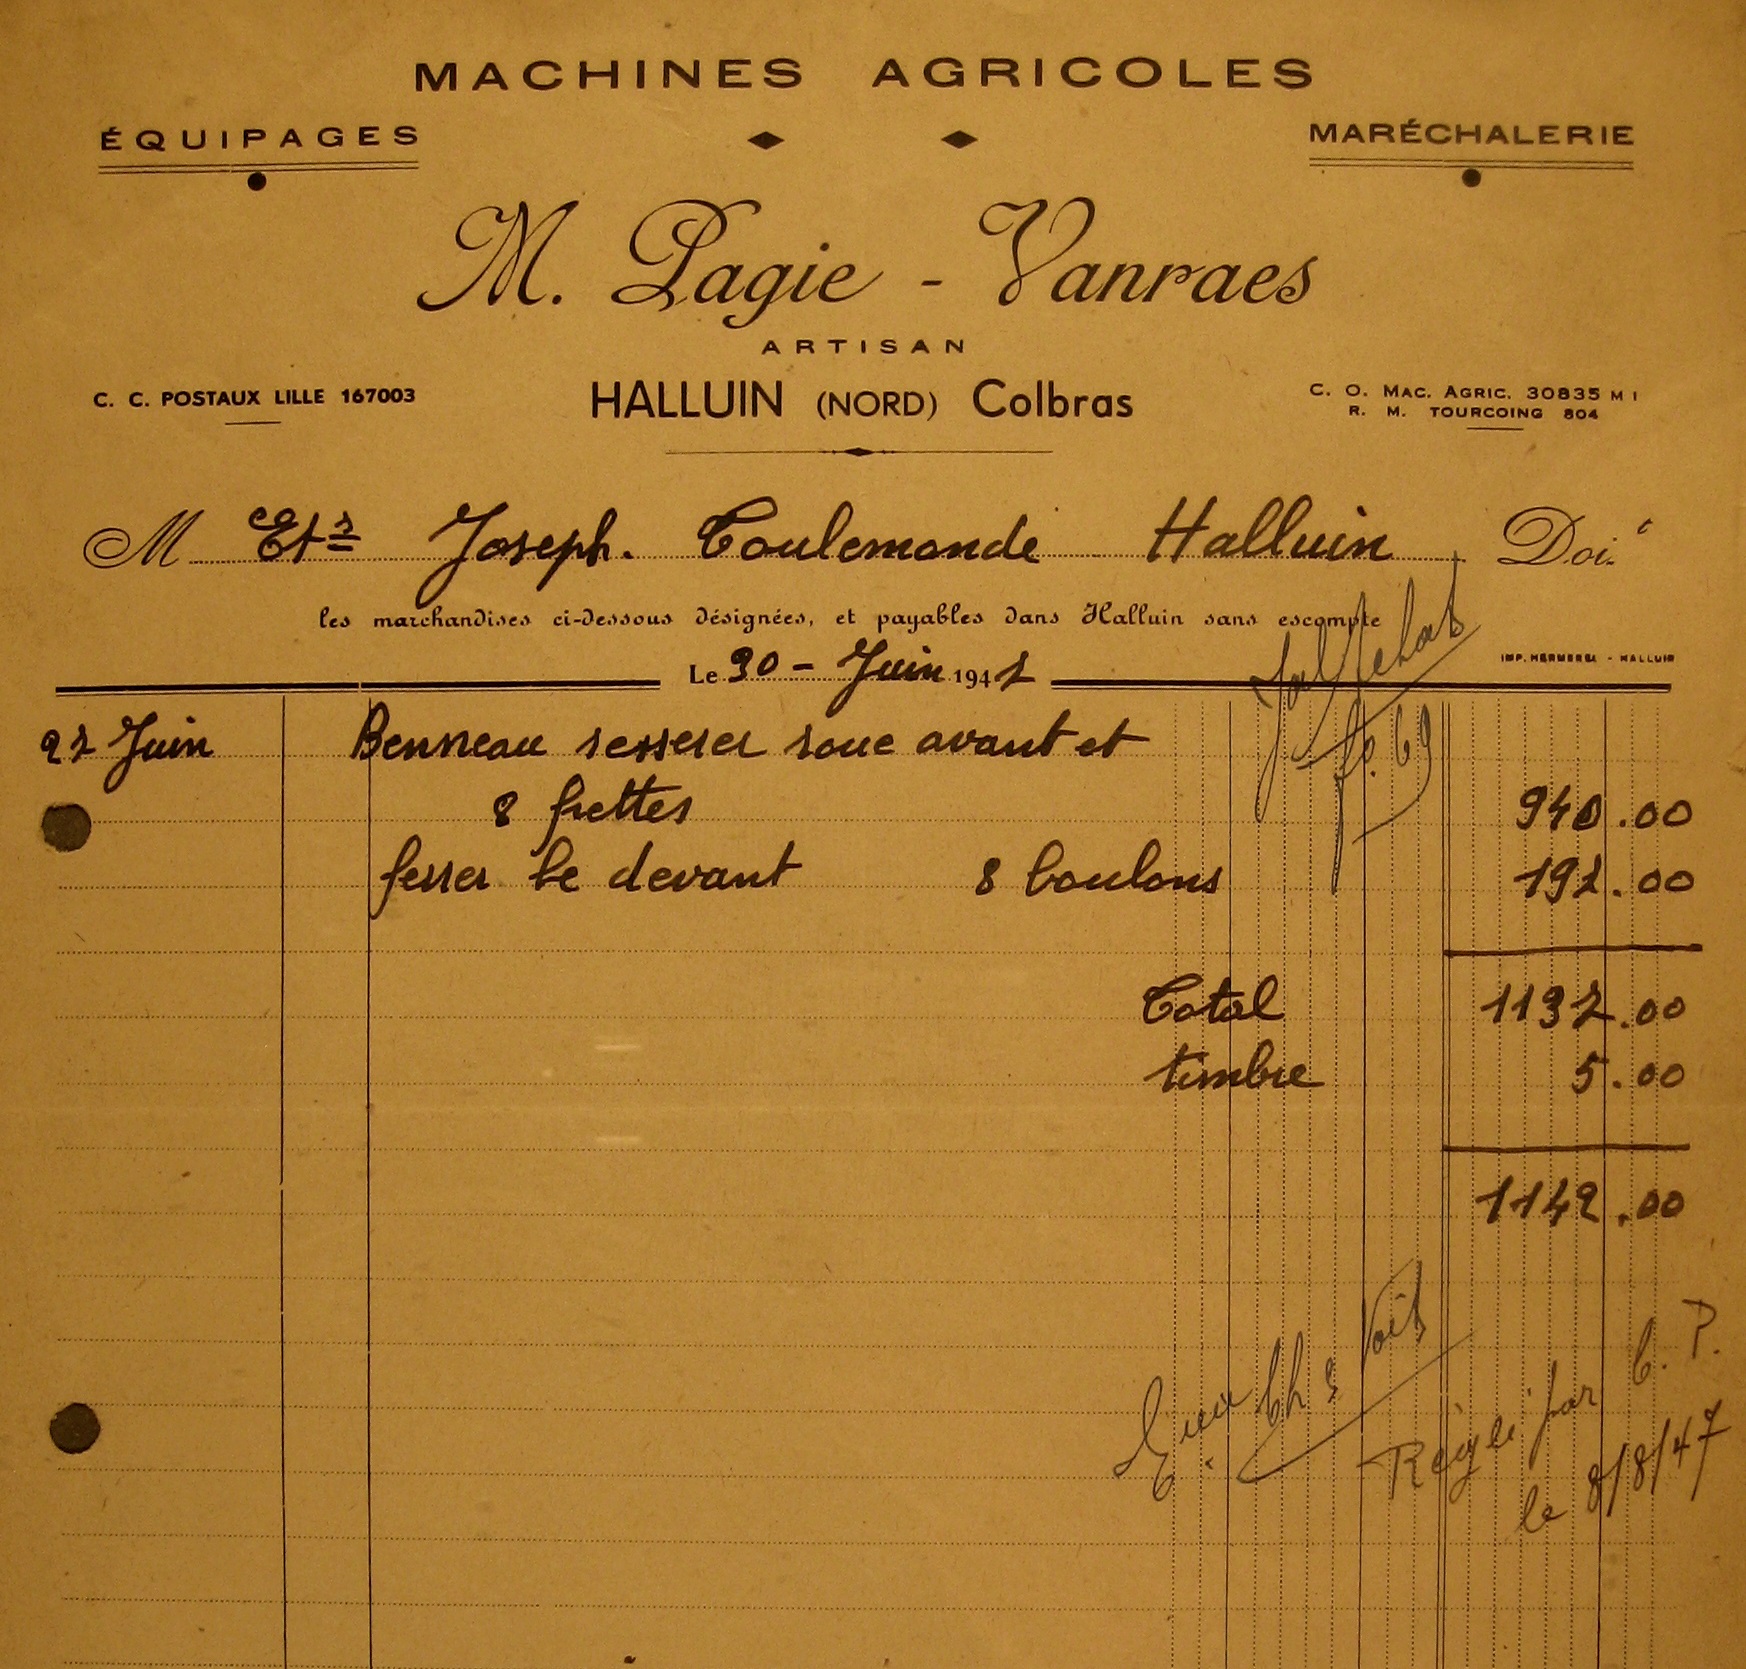 MACHINES AGRICOLES
ÉQUIPAGES
MARÉCHALERIE
M. Pagie - Vanraes
ARTISAN
C. C. POSTAUX LILLE 167003
HALLUIN (NORD) Colbras
C. O. MAC. AGRIC. 30835 M I
R. M. TOURCOING 804
M Ets Joseph. Toulemonde Halluin Doit
les marchandises ci-dessous désignées, et payables dans Halluin sans escompte
Jal Achat
fo. 69
Le 30 - Juin 1947
IMP. - HALLUIN
27 Juin Benneau resserer roue avant et
8 frettes 940.00
ferrer le devant 8 boulons 197.00
Total 1137.00
timbre 5.00
1142.00
Réglé par C. P.
le 8/8/47